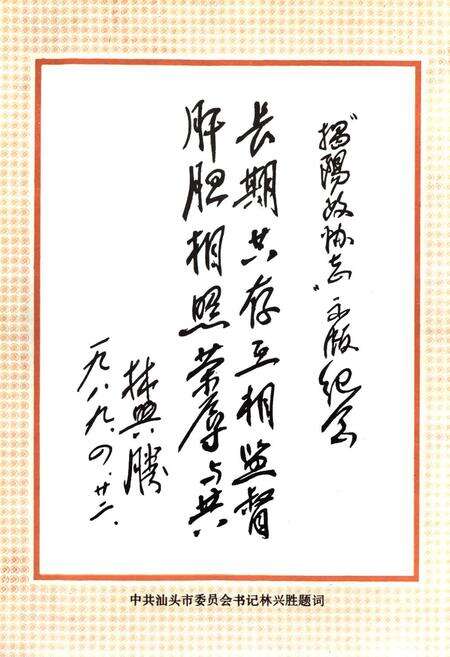 “揭陽政协志”出版纪念
长期共存互相监督
肝胆相照荣辱与共
林兴勝
一九八九.四.廿二.
中共汕头市委员会书记林兴胜题词